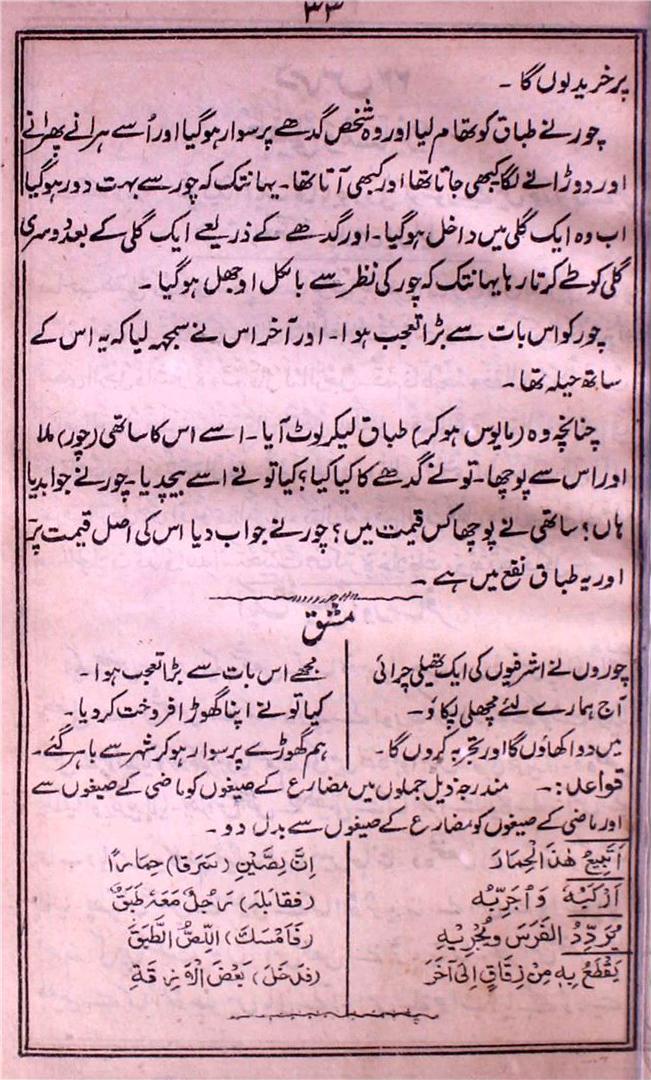 ۳۳
پر خرید لوں گا ۔
چور نے طباق کو تھام لیا اور وہ شخص گدھے پر سوار ہو گیا اور اُسے ہرانے پھرانے
اور دوڑانے لگا کبھی جاتا تھا اور کبھی آتا تھا۔ یہانتک کہ چور سے بہت دور ہو گیا
اب وہ ایک گلی میں داخل ہو گیا۔ اور گدھے کے ذریعے ایک گلی کے بعد دوسری
گلی کو طے کرتا رہا یہانتک کہ چور کی نظر سے بالکل اوجھل ہو گیا ۔
چور کو اس بات سے بڑا تعجب ہوا۔ اور آخر اس نے سمجھ لیا کہ یہ اس کے
ساتھ حیلہ تھا ۔
چنانچہ وہ (مایوس ہو کر) طباق لیکر لوٹ آیا۔ اسے اس کا ساتھی (چور) ملا
اور اس سے پوچھا۔ تو نے گدھے کا کیا کیا؟ کیا تو نے اسے بیچدیا۔ چور نے جوابدیا
ہاں؛ ساتھی نے پوچھا کس قیمت میں؟ چور نے جواب دیا اس کی اصل قیمت پر
اور یہ طباق نفع میں ہے ۔
مشق
چوروں نے اشرفیوں کی ایک تھیلی چرائی
آج ہمارے لئے مچھلی پکاؤ۔
میں دوا کھاؤں گا اور تجربہ کروں گا۔
مجھے اس بات سے بڑا تعجب ہوا ۔
کیا تو نے اپنا گھوڑا فروخت کر دیا ۔
ہم گھوڑے پر سوار ہو کر شہر سے باہر گئے۔
قواعد:۔ مندرجہ ذیل جملوں میں مضارع کے صیغوں کو ماضی کے صیغوں سے
اور ماضی کے صیغوں کو مضارع کے صیغوں سے بدل دو ۔
اَتَبِيعُ هٰذَا الْحِمَارَ
اَرْكَبُهٗ وَاُجَرِّبُهٗ
يُرَدِّدُ الْفَرَسَ وَيُجْرِيْهِ
يَقْطَعُ بِهٖ مِنْ زِقَاقٍ اِلٰى آخَرَ
اِنَّ لِصَّيْنِ (سَرَقَا) حِمَارًا
(فَقَابَلَهٗ) رَجُلٌ مَعَهٗ طَبَقٌ
(فَاَمْسَكَ) اللِّصُّ الطَّبَقَ
(فَدَخَلَ) بَعْضَ الْاَزِقَّةِ